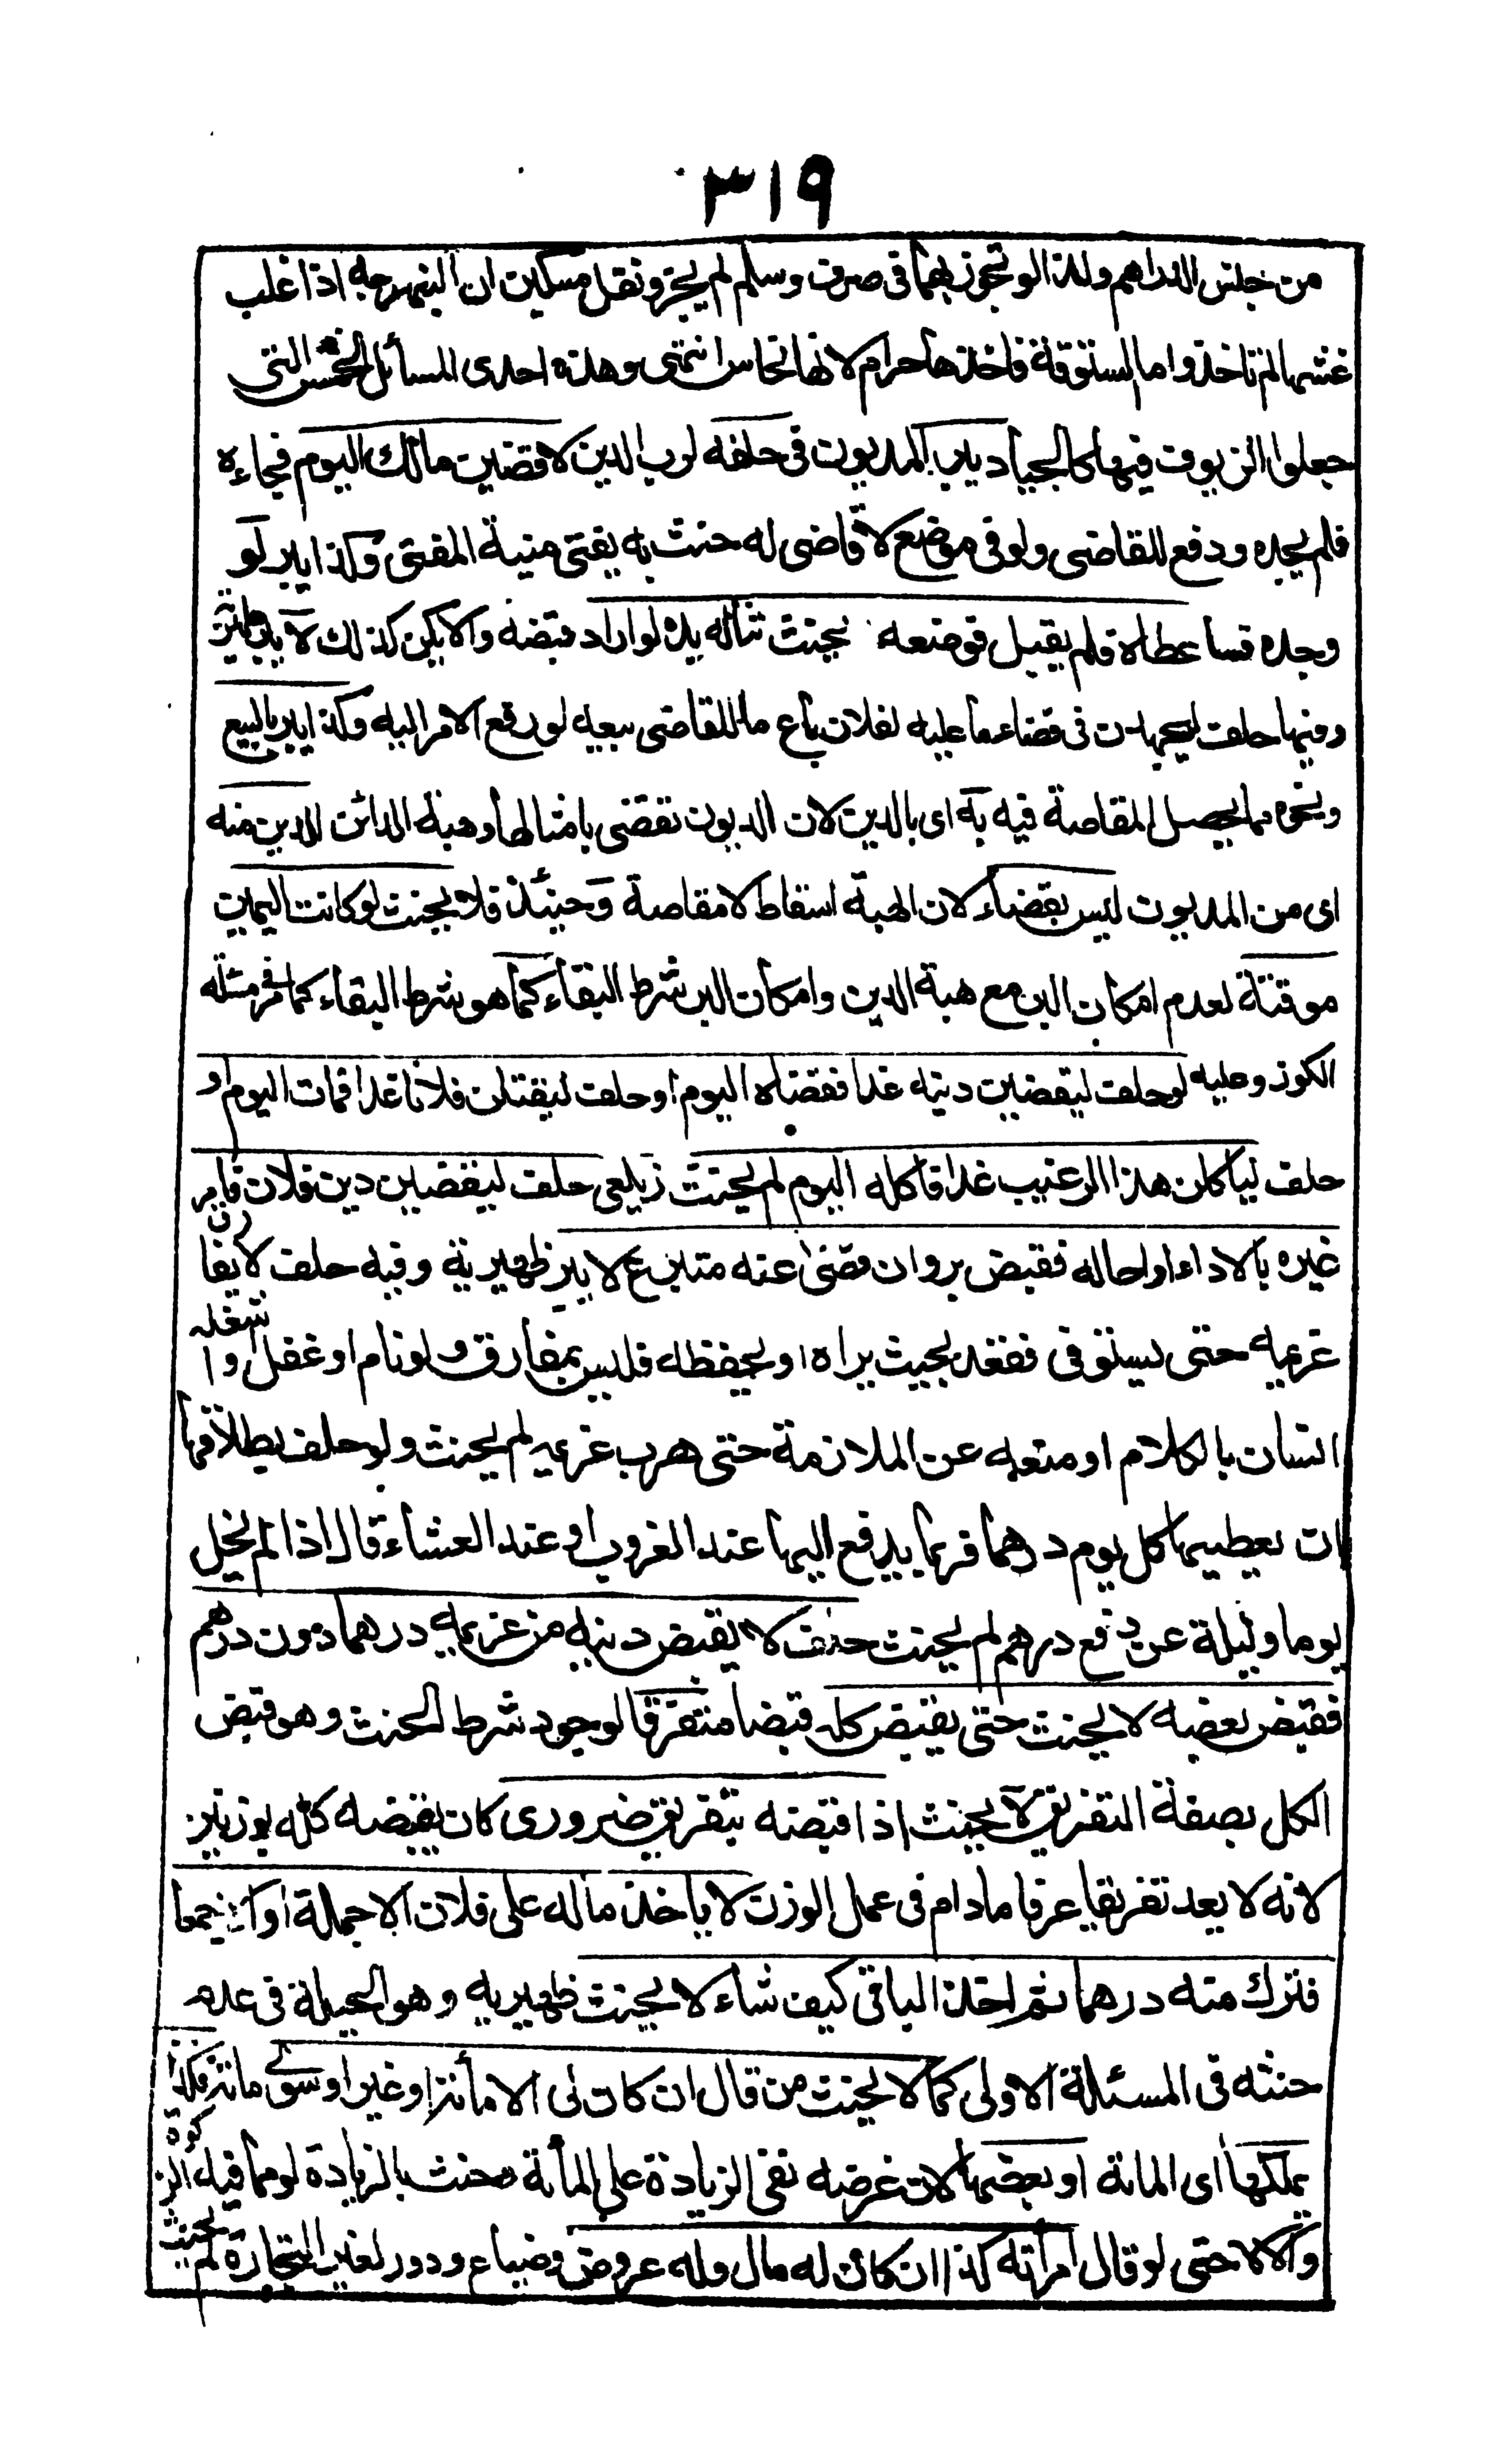 ٣١٩
من جلس الدراهم ولذا لو تجوز بهما فى صرف وسلم لم يجز ونقل مسكين ان النبهرجه اذا غلب
غشها لم تاخذ واما الستوقة فاخذها حرام لانها نحاس انتهى وهذه احدى المسائل الخمس التى
جعلوا الزيوف فيها كالجياد يبر المديون فى حلفه لرب الدين لاقضين مالك اليوم فجاءه
فلم يجده ودفع للقاضى ولو فى موضع لا قاضى له حنث به يفتى منية المفتى وكذا يبر لو
وجده فساعطاه فلم يقبل فوضعه بحيث تناله يده لو اراد قبضه والا يكن كذلك لا يبر ظهيرية
وفيها حلف ليجهدن فى قضاء ما عليه لفلان باع ما للقاضى بيعه لو رفع الامر اليه وكذا يبر بالبيع
ونحوه مما يحصل المقاصة فيه به اى بالدين لان الديون تقضى بامثالها وهبة الدائن الدين منه
اى من المديون ليس بقضاء لان الهبة اسقاط لا مقاصة وحينئذ فلا يحنث لو كانت اليمين
موقتة لعدم امكان البر مع هبة الدين وامكان البر شرط البقاء كما هو شرط البقاء كما مر فى مسئلة
الكوز وعليه لو حلف ليقضين دينه غدا فقضاه اليوم او حلف ليقتلن فلانا غدا فمات اليوم او
حلف ليا كلن هذا الرغيب غدا فاكله اليوم لم يحنث زيلعى حلف ليقضين دين فلان فامر
غيره بالاداء او احاله فقبض بر وان قضى عنه متبرع لا يبر ظهيرية وفيه حلف لا يفارق
غريمه حتى يستوفى فقعد بحيث يراه او يحفظه فليس بمفارق ولو نام او غفل او شغله
انسان بالكلام او منعه عن الملازمة حتى هرب غريمه لم يحنث ولو حلف بطلاقها
ان يعطيها كل يوم درهما فربما يدفع اليها عند الغروب او عند العشاء قال اذا لم يخل
يوما وليلة عن دفع درهم لم يحنث حلف لا يقبض دينه من غريمه درهما دون درهم
فقبض بعضه لا يحنث حتى يقبض كله قبضا متفرقا لوجود شرط الحنث وهو قبض
الكل بصفة التفريق لا يحنث اذا قبضه بتفريق ضرورى كان يقبضه كله بوزنين
لانه لا يعد تفريقا عرفا مادام فى عمل الوزن لا ياخذ ماله على فلان الا جملة او الا جمعا
فترك منه درهما ثم اخذ الباقى كيف شاء لا يحنث ظهيريه وهو الحيلة فى عدم
حنثه فى المسئلة الاولى كما لا يحنث من قال ان كان لى الا مائة او غير او سوى مائة فكذا
يملكها اى المائة او بعضها لان غرضه نفى الزيادة على المائة وحنث بالزيادة لو مما فيه الزكوة
والا لا حتى لو قال امرأته كذا ان كان له مال وله عروض وضياع ودور لغير التجارة لم يحنث